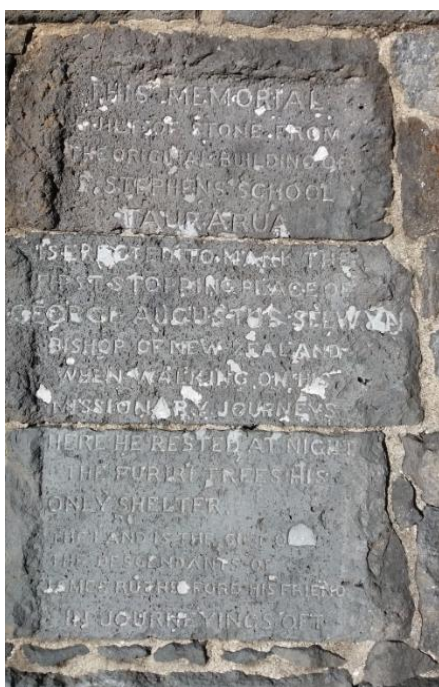 THIS MEMORIAL
BUILT OF STONE FROM
THE ORIGINAL BUILDING OF
S. STEPHENS SCHOOL
TAURARUA
IS ERECTED TO MARK THE
FIRST STOPPING PLACE OF
GEORGE AUGUSTUS SELWYN
BISHOP OF NEW ZEALAND
WHEN WALKING ON HIS
MISSIONARY JOURNEYS
HERE HE RESTED AT NIGHT
THE PURIRI TREES HIS
ONLY SHELTER.
THE LAND IS THE GIFT OF
THE DESCENDANTS OF
JAMES RUTHERFORD HIS FRIEND
IN JOURNEYINGS OFT